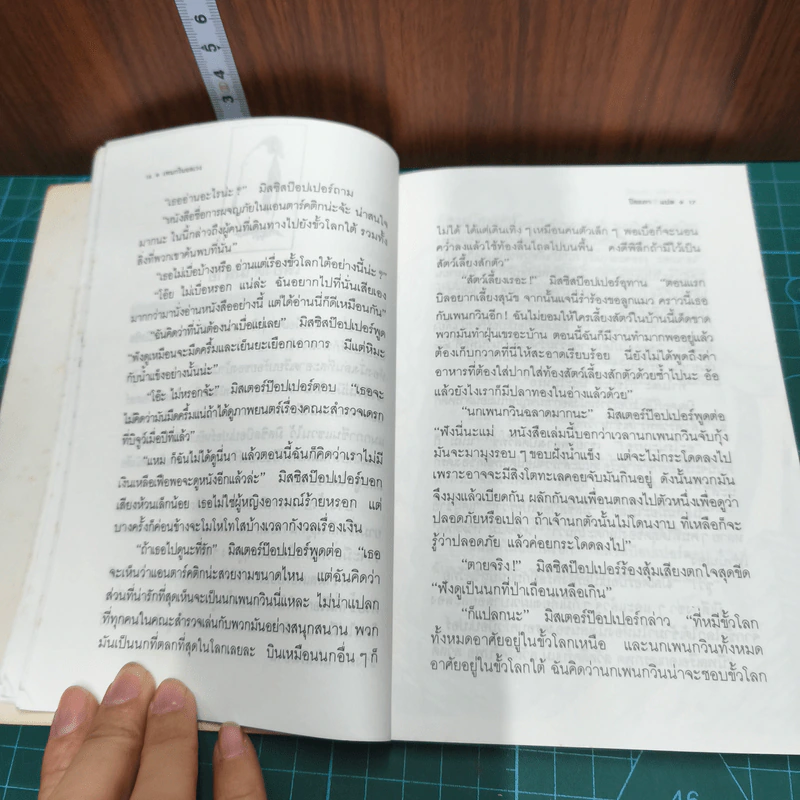 "เธออ่านอะไรน่ะ ?" มิสซิสป๊อปเปอร์ถาม
"หนังสือชื่อการผจญภัยในแอนตาร์คติกน่ะจ้ะ น่าสนใจ
มากนะ ในนี้กล่าวถึงผู้คนที่เดินทางไปยังขั้วโลกใต้ รวมทั้ง
สิ่งที่พวกเขาค้นพบที่นั่น"
"เธอไม่เบื่อบ้างหรือ อ่านแต่เรื่องขั้วโลกใต้อย่างนี้น่ะ ?"
"โอ๊ย ไม่เบื่อหรอก แน่ล่ะ ฉันอยากไปที่นั่นเสียเอง
มากกว่ามานั่งอ่านหนังสืออย่างนี้ แต่ได้อ่านนี่ก็ดีเหมือนกัน"
"ฉันคิดว่าที่นั่นต้องน่าเบื่อแย่เลย" มิสซิสป๊อปเปอร์พูด
"ฟังดูเหมือนจะมืดครึ้มและเย็นยะเยือกเอาการ มีแต่หิมะ
กับน้ำแข็งอย่างนั้นน่ะ"
"โอ๊ะ ไม่หรอกจ้ะ" มิสเตอร์ป๊อปเปอร์ตอบ "เธอจะ
ไม่คิดว่ามันมืดครึ้มแน่ถ้าได้ดูภาพยนตร์เรื่องคณะสำรวจเดรก
ที่บิจูว์เมื่อปีที่แล้ว"
"แหม ก็ฉันไม่ได้ดูนี่นา แล้วตอนนี้ฉันก็คิดว่าเราไม่มี
เงินเหลือเฟือพอจะดูหนังอีกแล้วล่ะ" มิสซิสป๊อปเปอร์บอก
เสียงห้วนเล็กน้อย เธอไม่ใช่ผู้หญิงอารมณ์ร้ายหรอก แต่
บางครั้งก็ค่อนข้างจะโมโหโทโสบ้างเวลากังวลเรื่องเงิน
"ถ้าเธอไปดูนะที่รัก" มิสเตอร์ป๊อปเปอร์พูดต่อ "เธอ
จะเห็นว่าแอนตาร์คติกน่ะสวยงามขนาดไหน แต่ฉันคิดว่า
ส่วนที่น่ารักที่สุดเห็นจะเป็นนกเพนกวินนี่แหละ ไม่น่าแปลก
ที่ทุกคนในคณะสำรวจเล่นกับพวกมันอย่างสนุกสนาน พวก
มันเป็นนกที่ตลกที่สุดในโลกเลยละ บินเหมือนนกอื่น ๆ ก็
ไม่ได้ ได้แต่เดินเทิ่ง ๆ เหมือนคนตัวเล็ก ๆ พอเบื่อก็จะนอน
คว่ำลงแล้วใช้ท้องลื่นไถลไปบนพื้น คงดีพิลึกถ้ามีไว้เป็น
สัตว์เลี้ยงสักตัว"
"สัตว์เลี้ยงเรอะ !" มิสซิสป๊อปเปอร์อุทาน "ตอนแรก
บิลอยากเลี้ยงสุนัข จากนั้นแจนี่ร่ำร้องขอลูกแมว คราวนี้เธอ
กับเพนกวินอีก ! ฉันไม่ยอมให้ใครเลี้ยงสัตว์ในบ้านนี้เด็ดขาด
พวกมันทำฝุ่นเขรอะบ้าน ตอนนี้ฉันก็มีงานทำมากพออยู่แล้ว
ต้องเก็บกวาดที่นี่ให้สะอาดเรียบร้อย นี่ยังไม่ได้พูดถึงค่า
อาหารที่ต้องใส่ปากใส่ท้องสัตว์เลี้ยงสักตัวด้วยซ้ำไปนะ อ้อ
แล้วยังไงเราก็มีปลาทองในอ่างแล้วด้วย"
"นกเพนกวินฉลาดมากนะ" มิสเตอร์ป๊อปเปอร์พูดต่อ
"ฟังนี่นะแม่ หนังสือเล่มนี้บอกว่าเวลานกเพนกวินจับกุ้ง
มันจะมามุงรอบ ๆ ขอบฝั่งน้ำแข็ง แต่จะไม่กระโดดลงไป
เพราะอาจจะมีสิงโตทะเลคอยจับมันกินอยู่ ดังนั้นพวกมัน
จึงมุงแล้วเบียดกัน ผลักกันจนเพื่อนตกลงไปตัวหนึ่งเพื่อดูว่า
ปลอดภัยหรือเปล่า ถ้าเจ้านกตัวนั้นไม่โดนงาบ ที่เหลือก็จะ
รู้ว่าปลอดภัย แล้วค่อยกระโดดลงไป"
"ตายจริง !" มิสซิสป๊อปเปอร์ร้องสุ้มเสียงตกใจสุดขีด
"ฟังดูเป็นนกที่ป่าเถื่อนเหลือเกิน"
"ก็แปลกนะ" มิสเตอร์ป๊อปเปอร์กล่าว "ที่หมีขั้วโลก
ทั้งหมดอาศัยอยู่ในขั้วโลกเหนือ และนกเพนกวินทั้งหมด
อาศัยอยู่ในขั้วโลกใต้ ฉันคิดว่านกเพนกวินน่าจะชอบขั้วโลก
3 4 5 6